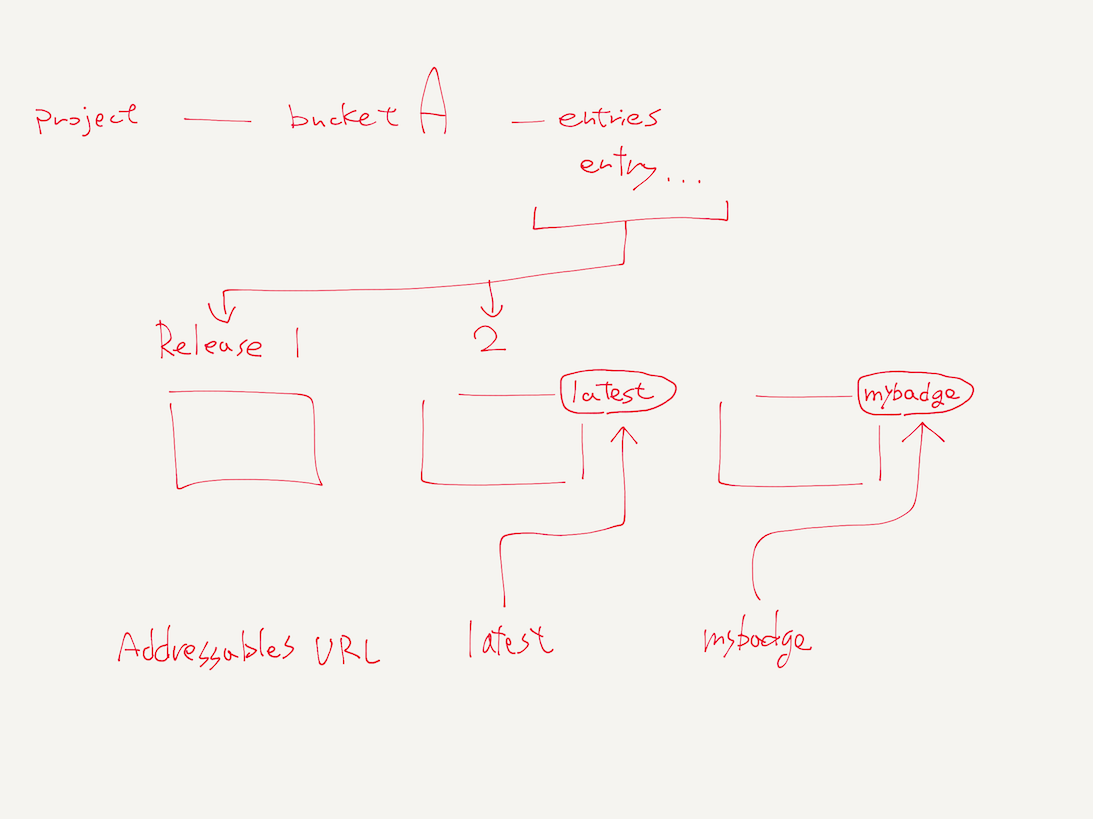 project — bucket A — entries
entry...
Release 1 2
latest mybadge
Addressables URL latest mybadge